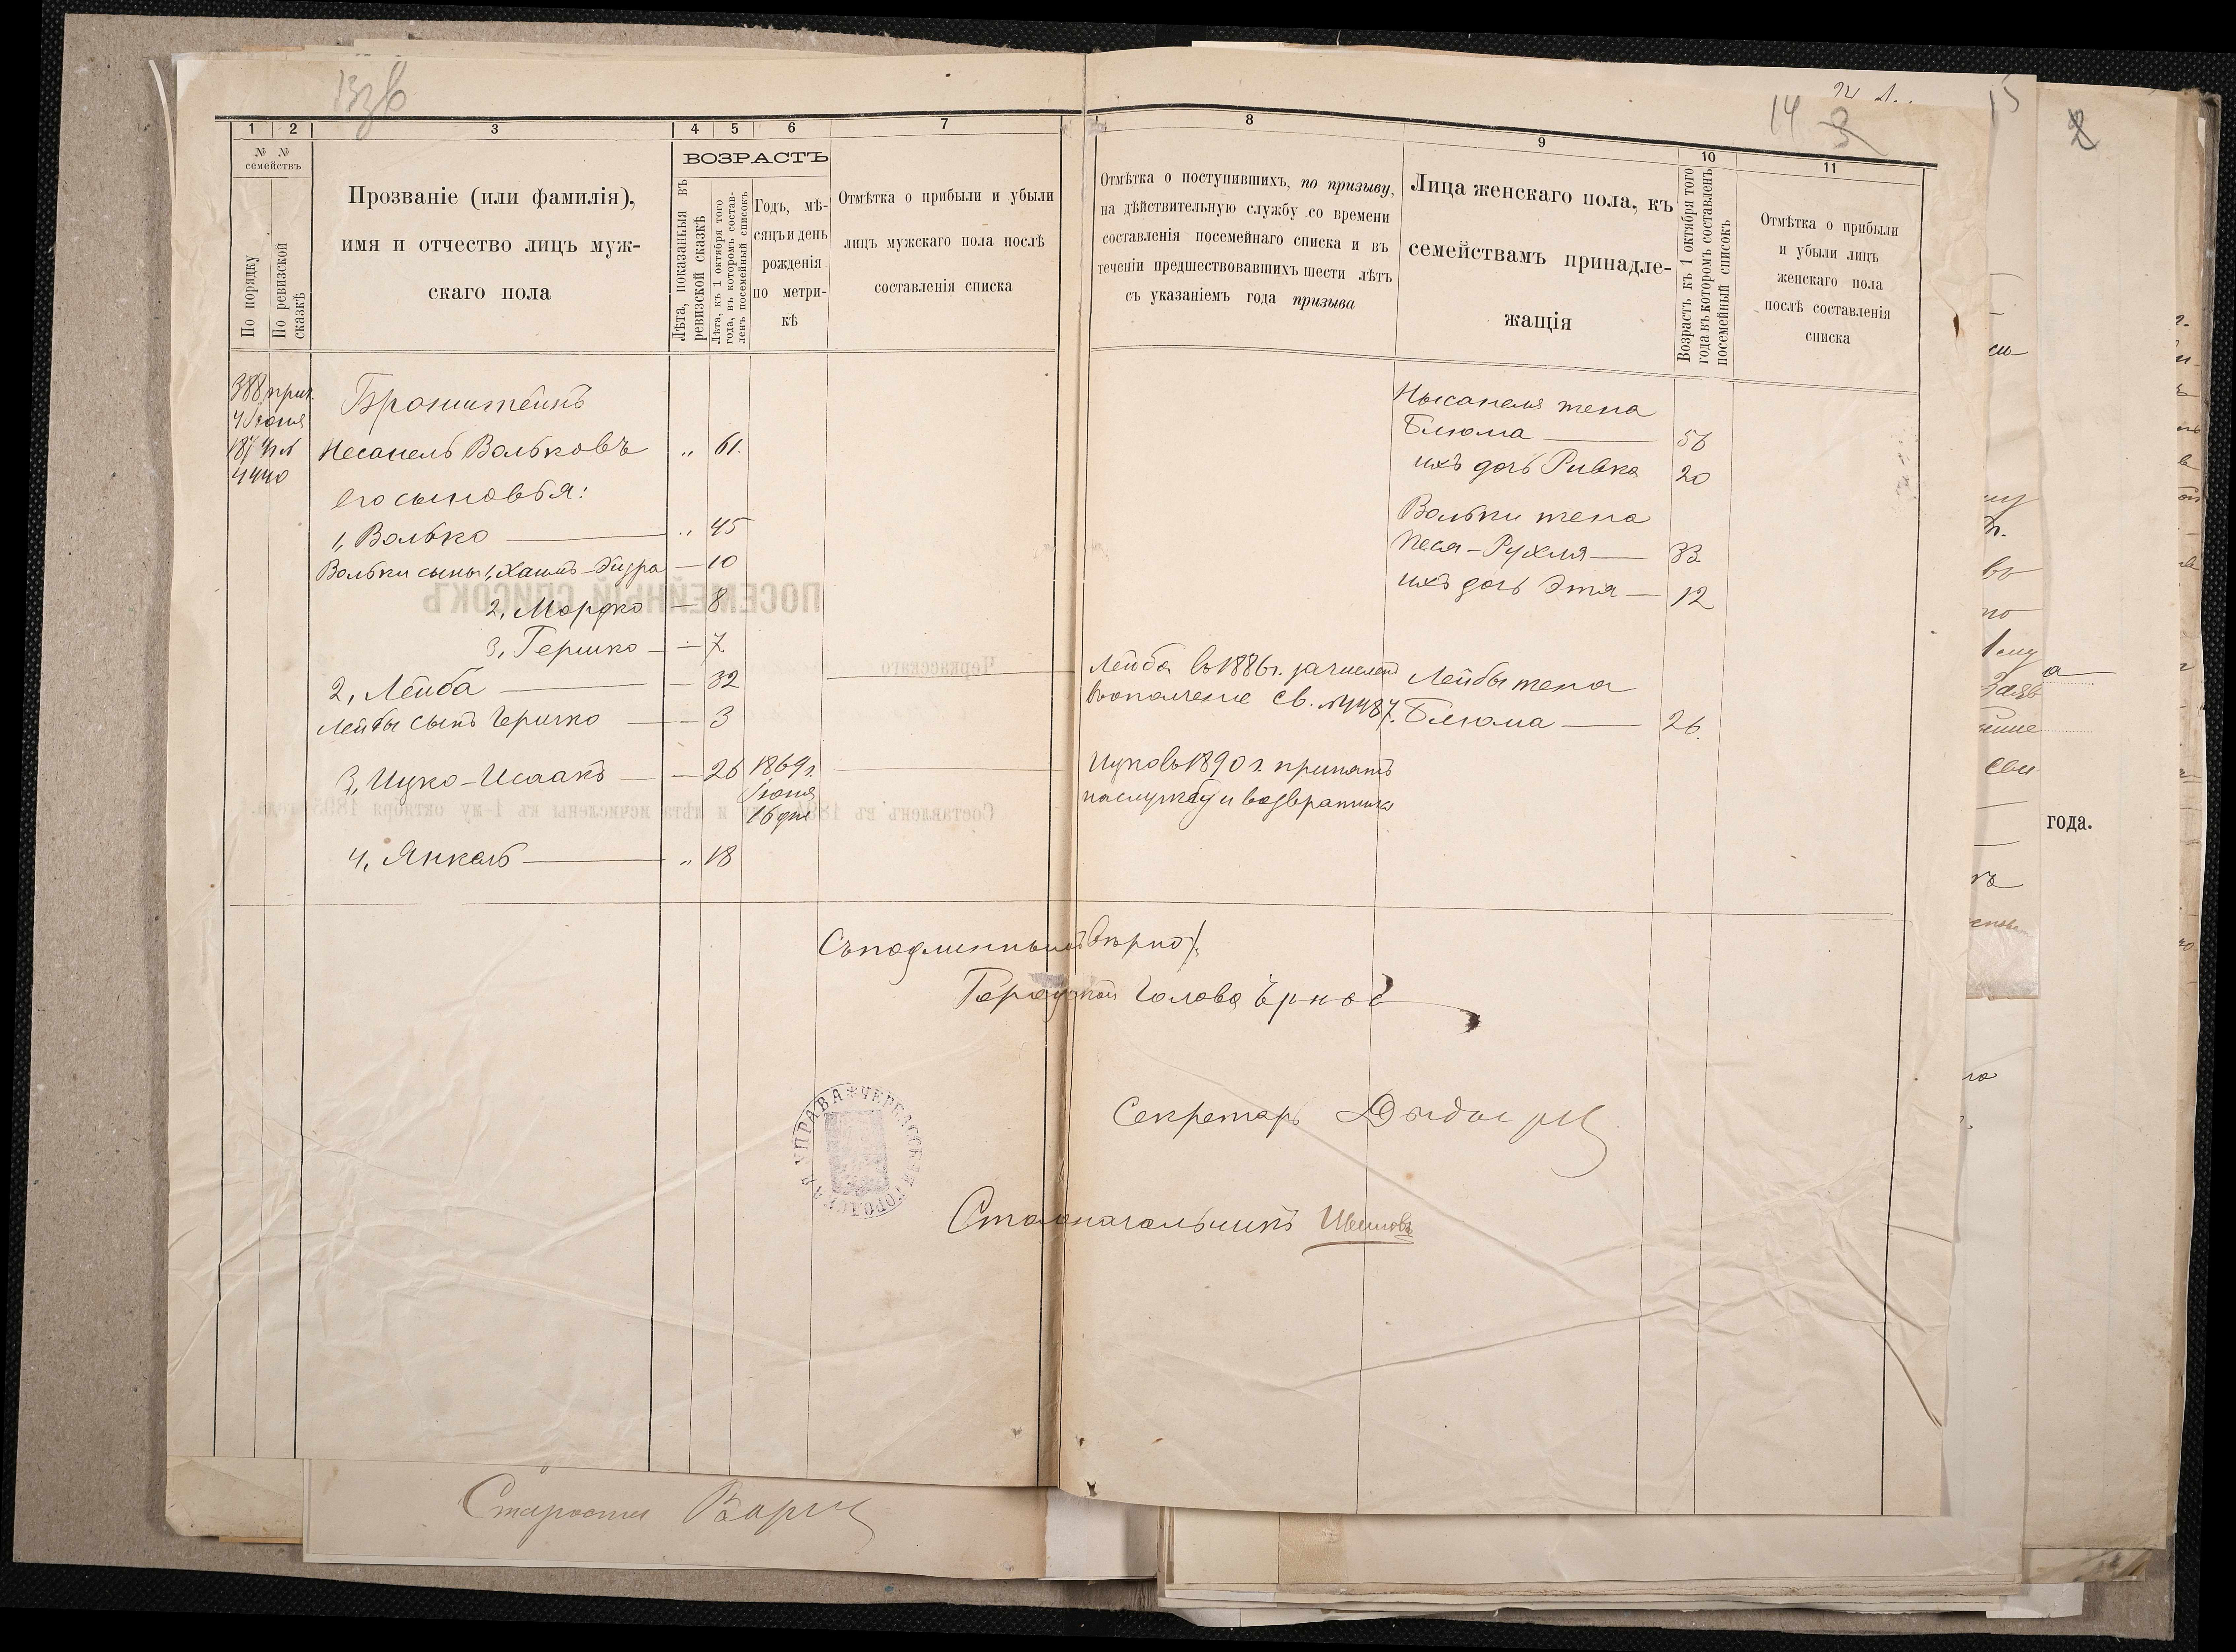 13зв
1 2 3 4 5 6 7
№ №
семействъ
По порядку
По ревизской
сказкѣ
Прозваніе (или фамилія),
имя и отчество лицъ муж-
скаго пола
ВОЗРАСТЪ
Лѣта, показанныя въ
ревизской сказкѣ
Лѣта, къ 1 октября того
года, въ которомъ состав-
ленъ посемейный списокъ
Годъ, мѣ-
сяцъ и день
рожденія
по метри-
кѣ
Отмѣтка о прибыли и убыли
лицъ мужскаго пола послѣ
составленія списка
388 прич.
4 Іюня
187
4440
Бронштейнъ
Несанель Вольковъ „ 61.
Его сыновья:
1, Волько — „ 45
Вольки сыны 1, Хаимъ- — 10
2, Мордко — 8
3, Гершко — 7.
2, Лейба — 32
Лейбы сынъ Гершко — 3
3, Ицко-Исаакъ — 26 1869 г.
Іюня
16 дня
4, Янкель — „ 18
14 3
8 9 10 11
Отмѣтка о поступившихъ, по призыву,
на дѣйствительную службу со времени
составленія посемейнаго списка и въ
теченіи предшествовавшихъ шести лѣтъ
съ указаніемъ года призыва
Лица женскаго пола, къ
семействамъ принадле-
жащія
Возрастъ къ 1 октября того
года въ которомъ составленъ
посемейный списокъ
Отмѣтка о прибыли
и убыли лицъ
женскаго пола
послѣ составленія
списка
Нысанеля жена
Блюма — 56
ихъ дочь Ривка 20
Вольки жена
Песя-Рухля — 33.
ихъ дочь Этя — 12
Лейба въ 1886 г. зачисленъ
въ ополченіе св. № 4487.
Лейбы жена
Блюма — 26.
Ицко въ 1890 г. принятъ
на службу и возвратился
Съ подлиннымъ вѣрно:
Городской Голова
Секретарь
Столоначальникъ
ЧЕРКАССКАЯ ГОРОДСКАЯ УПРАВА
ПОСЕМЕЙНЫЙ СПИСОКЪ
Черкасскаго
Составленъ въ 189 году и лѣта исчислены къ 1-му октября 1895 года.
Староста
15
2
года.